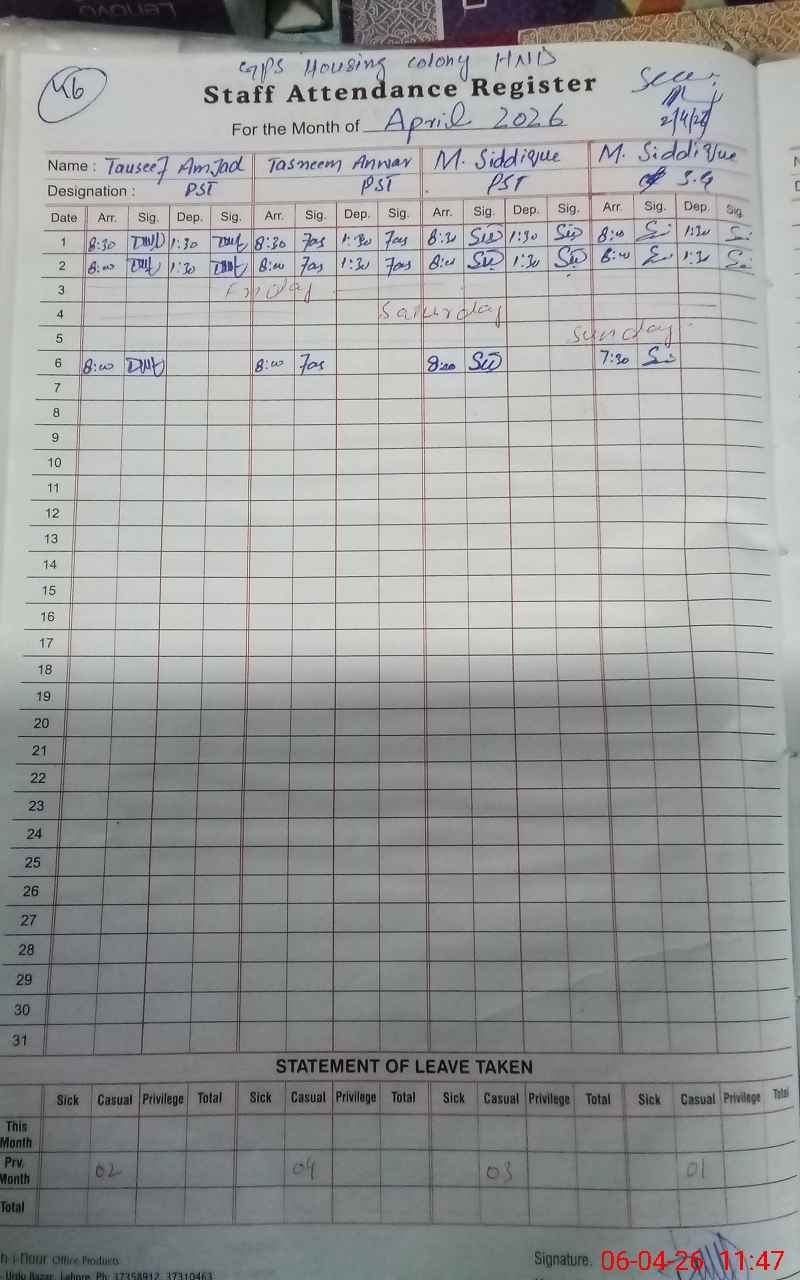 LENOVO
GPS Housing colony HND
46
Staff Attendance Register
Seen
2/4/26
For the Month of April 2026
Name : Tauseef Amjad Tasneem Anwar M. Siddique M. Siddique
Designation : PST PST PST S.G
Date Arr. Sig. Dep. Sig. Arr. Sig. Dep. Sig. Arr. Sig. Dep. Sig. Arr. Sig. Dep. Sig.
1 8:30 1:30 8:30 Tas 1:30 Tas 8:30 1:30 8:00 1:30
2 8:00 1:30 8:00 Tas 1:30 Tas 8:00 1:30 8:00 1:30
3 Friday
4 Saturday
5 Sunday
6 8:00 8:00 Tas 8:00 7:30
7
8
9
10
11
12
13
14
15
16
17
18
19
20
21
22
23
24
25
26
27
28
29
30
31
STATEMENT OF LEAVE TAKEN
Sick Casual Privilege Total Sick Casual Privilege Total Sick Casual Privilege Total Sick Casual Privilege Total
This Month
Prv. Month 02 04 03 01
Total
h-i-noor Office Products
Urdu Bazar, Lahore. Ph: 37358912, 37310463
Signature.
06-04-26 11:47